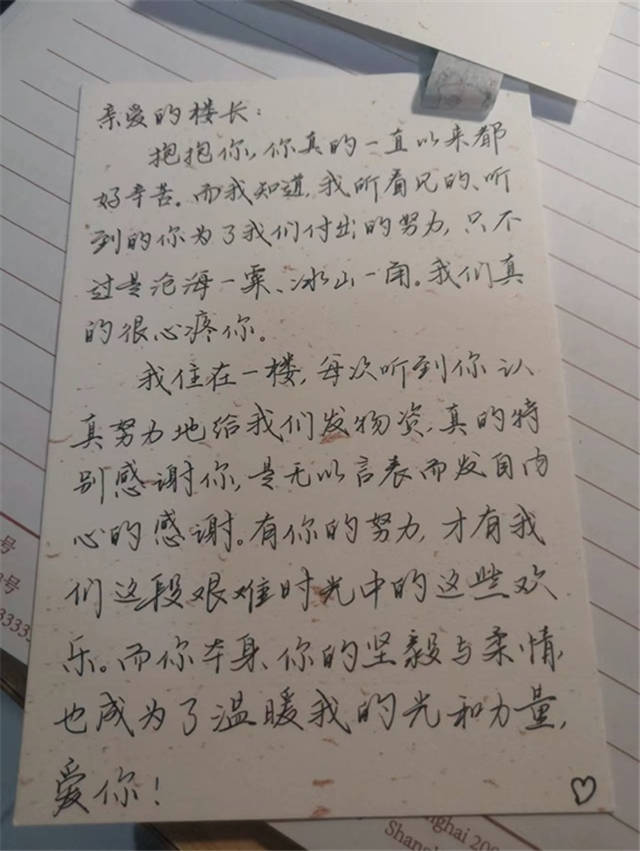 亲爱的楼长：
抱抱你，你真的一直以来都
好辛苦。而我知道，我所看见的、听
到的你为了我们付出的努力，只不
过是沧海一粟、冰山一角。我们真
的很心疼你。
我住在一楼，每次听到你认
真努力地给我们发物资，真的特
别感谢你，是无以言表而发自内
心的感谢。有你的努力，才有我
们这段艰难时光中的这些欢
乐。而你本身、你的坚毅与柔情，
也成为了温暖我的光和力量，
爱你！
号
号
3333
Shanghai 200
Shang